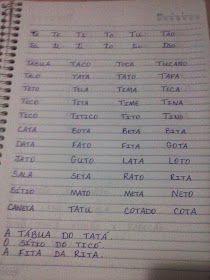 TA TE TI TO TU TÃO
TÁBUA TACO TOCA TUCANO
TALO TATA TATO TAPA
TETO TELA TIMA TECA
TECO TETA TIME TINA
TICO TITICO TITO TINO
CATA BOTA BETA BITA
DATA FATO FITA GOTA
JATO GUTO LATA LOTO
SALA SETA RATO RITA
SÍTIO MATO META NETO
CANETA TATU COTADO COTA
A TÁBUA DO TATÁ.
O SÍTIO DO TICO.
A FITA DA RITA.